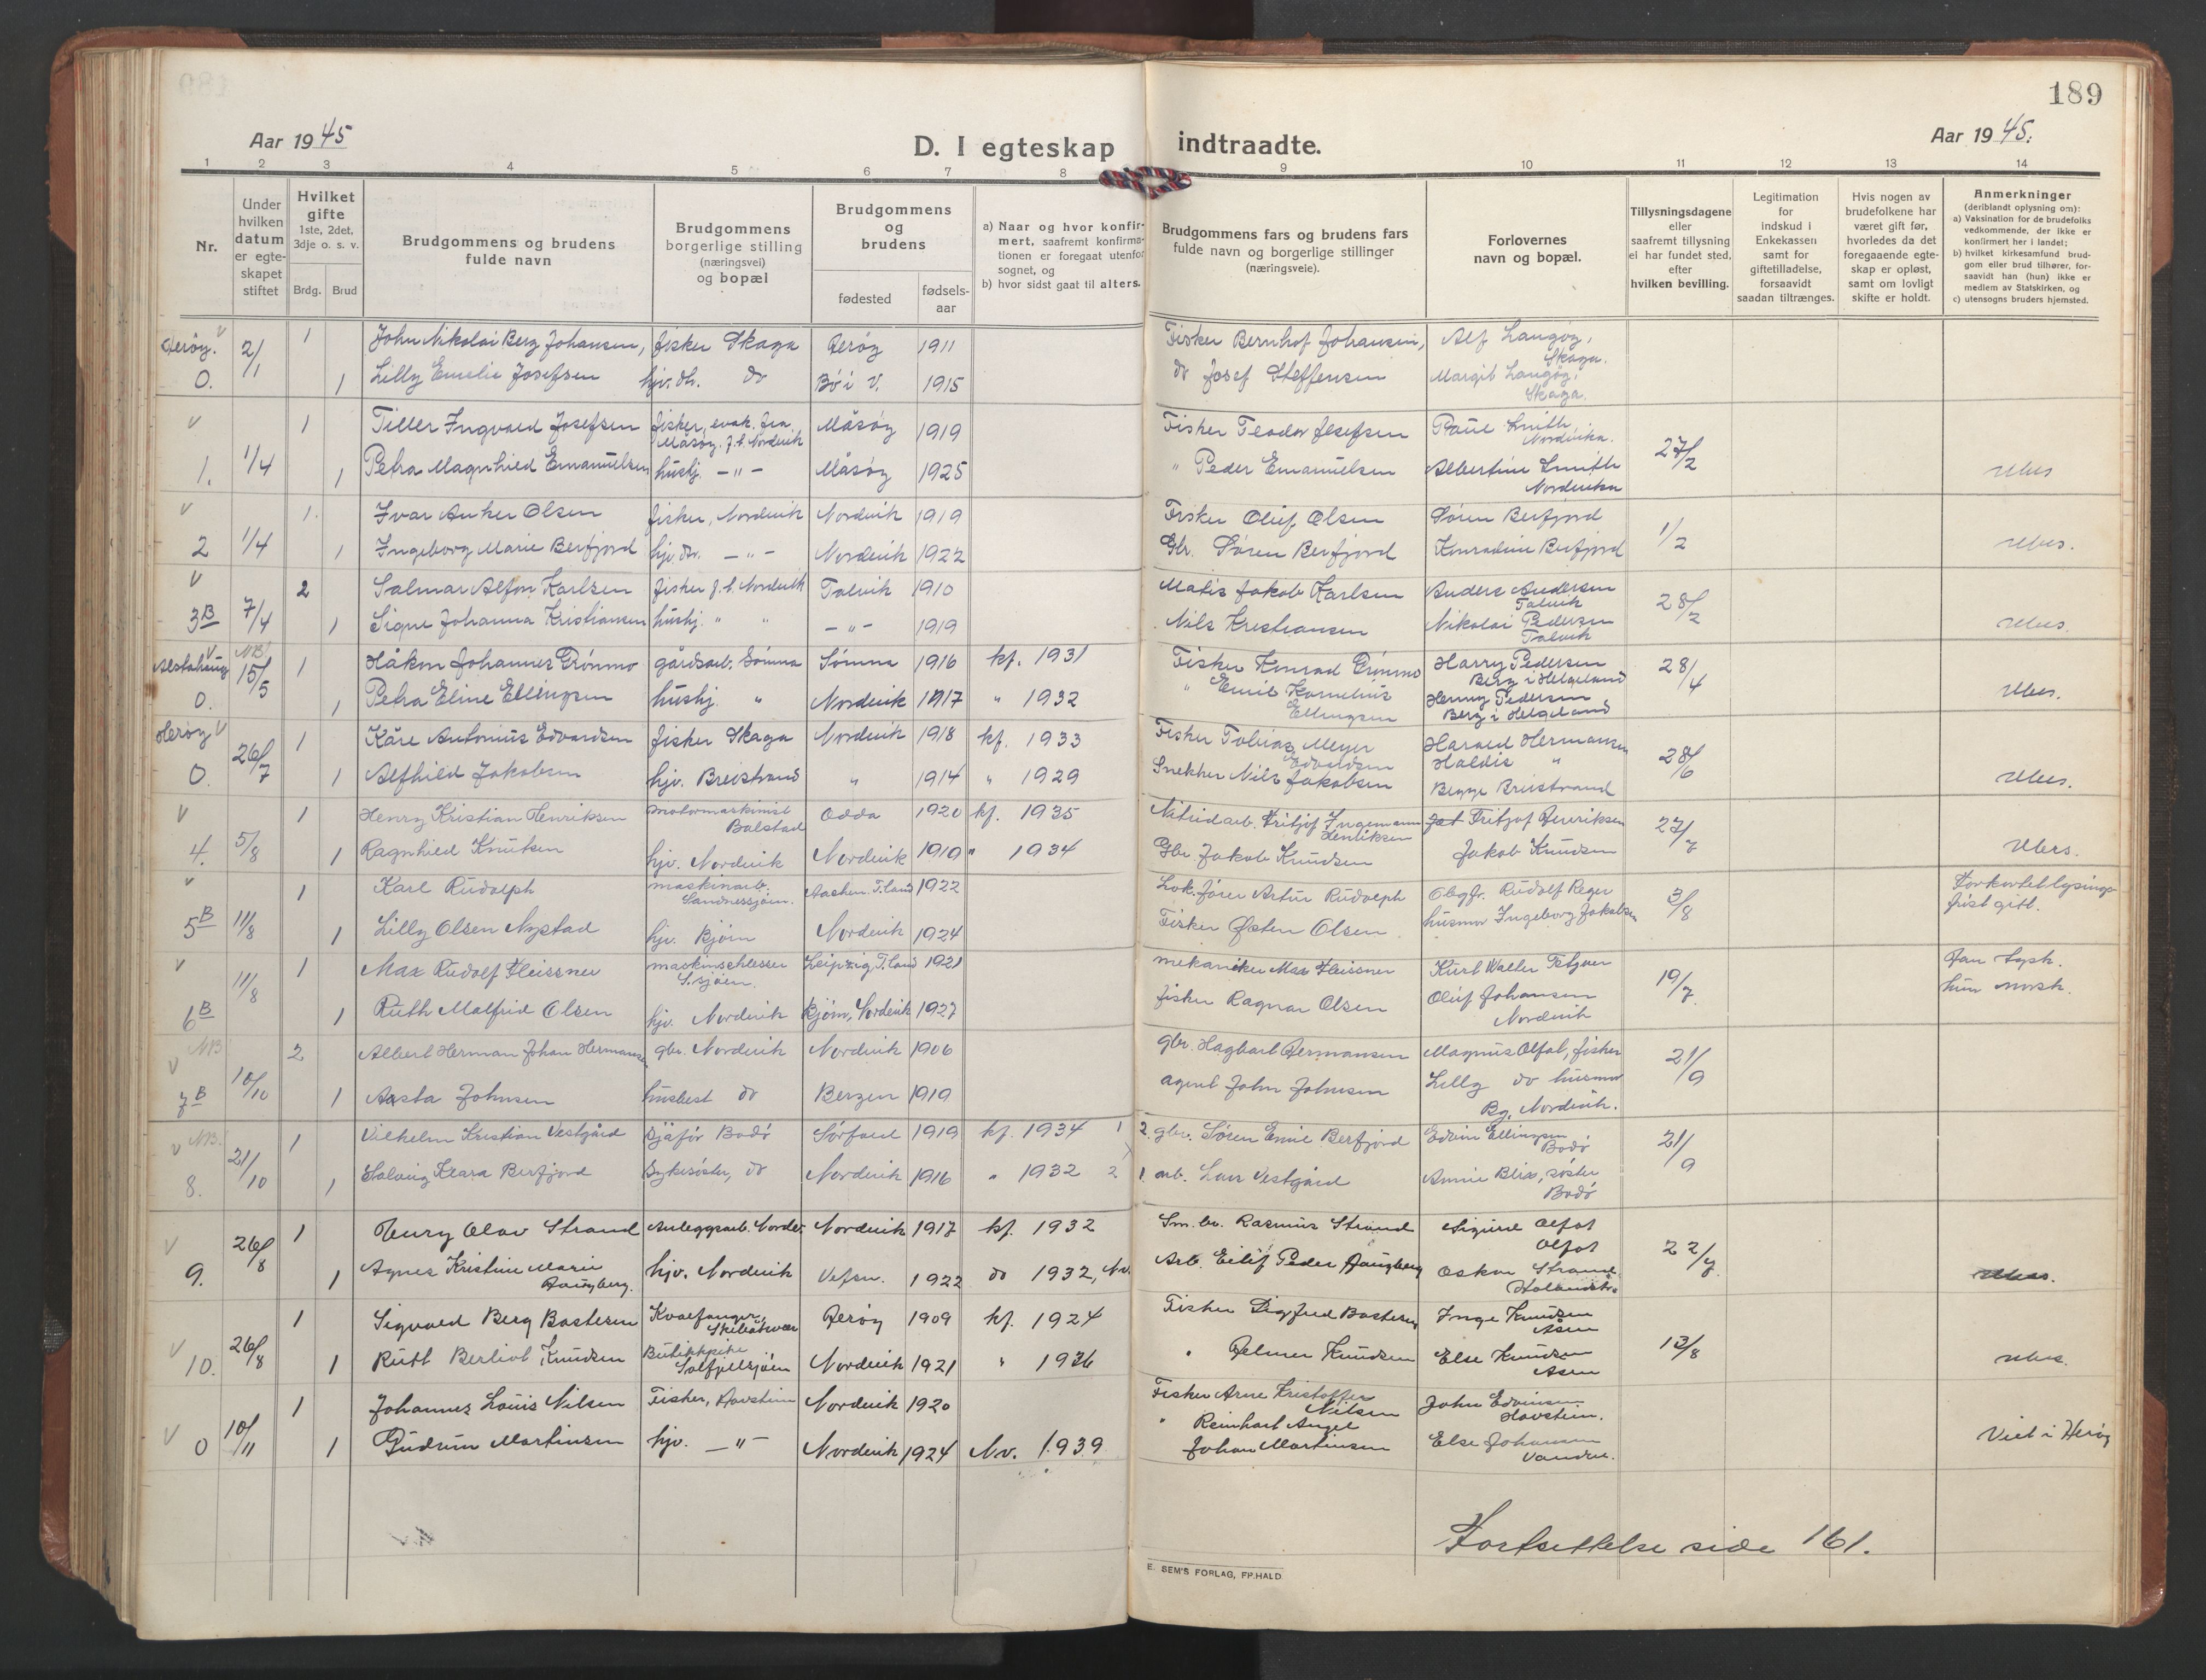 189
Aar 1945
D. I egteskap indtraadte.
Aar 1945.
1 2 3 4 5 6 7 8 9 10 11 12 13 14
Nr.
Under hvilken datum er egteskapet stiftet
Hvilket gifte 1ste, 2det, 3dje o. s. v.
Brdg. Brud
Brudgommens og brudens fulde navn
Brudgommens borgerlige stilling (næringsvei) og bopæl
Brudgommens og brudens
fødested
fødsels-aar
a) Naar og hvor konfirmert, saafremt konfirmationen er foregaat utenfor sognet, og
b) hvor sidst gaat til alters.
Brudgommens fars og brudens fars fulde navn og borgerlige stillinger (næringsveie).
Forlovernes navn og bopæl.
Tillysningsdagene eller saafremt tillysning ei har fundet sted, efter hvilken bevilling.
Legitimation for indskud i Enkekassen samt for giftetilladelse, forsaavidt saadan tiltrænges.
Hvis nogen av brudefolkene har været gift før, hvorledes da det foregaaende egteskap er opløst, samt om lovligt skifte er holdt.
Anmerkninger (deriblandt oplysning om):
a) Vaksination for de brudefolks vedkommende, der ikke er konfirmert her i landet;
b) hvilket kirkesamfund brudgom eller brud tilhører, forsaavidt han (hun) ikke er medlem av Statskirken, og
c) utensogns bruders hjemsted.
Herøy. v 2/1 1 John Nikolai Berg Johansen, fisker Skaga Herøy 1911 Fisker Bernhof Johansen, Alf Langøy, Skaga.
0. 1 Lilly Emelie Josefsen hjv. do Bø i V. 1915 do Josef Steffensen Margit Langøy, Skaga.
v 1/4 1 Tiller Ingvald Josefsen fisker, evak. fra Måsøy, f.t. Nordvik Måsøy 1919 Fisker Teodor Josefsen Paul Smith Nordvika. 27/2
1. 1 Petra Magnhild Emanuelsen hushj. -"- Måsøy 1925 " Peder Emanuelsen Albertine Smith Nordvika
v 1/4 1. Ivar Anker Olsen fisker, Nordvik Nordvik 1919 Fisker Oluf Olsen Søren Berfjord 1/2
2 1 Ingeborg Marie Berfjord hjv. -"- Nordvik 1922 Gbr. Søren Berfjord Konradine Berfjord
v 7/4 2 Salmar Alfon Karlsen fisker f.t. Nordvik Talvik 1910 Matis Jakob Karlsen Anders Andersen Talvik 28/2
3B 1 Signe Johanna Kristiansen hushj. " " -"- 1919 Nils Kristiansen Nikolai Pedersen Talvik
Alstahaug v NB! 15/5 1 Håkon Johannes Grønmo gårdsarb. Sømna Sømna 1916 kf. 1931 Fisker Konrad Grønmo Harry Pedersen Berg i Helgeland 28/4
0. 1 Petra Eline Ellingsen hushj. " Nordvik 1917 " 1932 " Emil Kornelius Ellingsen Henny Pedersen Berg i Helgeland
Herøy v 26/7 1 Kåre Antonius Edvardsen fisker Skaga Nordvik 1918 kf. 1933 Fisker Tobias Meyer Edvardsen Harald Hermansen 28/6
0. 1 Alfhild Jakobsen hjv. Breistrand " 1914 " 1929 Snekker Nils Jakobsen Haldis " Begge Breistrand
v 5/8 1 Henry Kristian Henriksen motormaskinist Balstad Odda 1920 kf. 1935 Nitridarb. Fritjof Ingemann Henriksen Fritjof Henriksen 27/7
4. 1 Ragnhild Knutsen hjv. Nordvik Nordvik 1919 " 1934 Gbr. Jakob Knudsen Jakob Knudsen
v 11/8 1 Karl Rudolph maskinarb. Sandnessjøen. Aachen T.land 1922 Lok.fører Artur Rudolph Obgfr. Rudolf Reger 3/8 Forkortet lysingsfrist gitt.
5B 1 Lilly Olsen Nystad hjv. Bjørn Nordvik 1924 Fisker Østen Olsen husmor Ingeborg Jakobsen
v 11/8 1 Max Rudolf Fleissner maskinschlosser S.sjøen. Leipzig, T.land 1921 mekaniker Max Fleissner Kurt Walter 19/7
6B 1 Ruth Malfrid Olsen hjv. Nordvik Bjørn, Nordvik 1927 fisker Ragnar Olsen Oluf Johansen Nordvik hun norsk.
v NB 10/10 2 Albert Herman Johan Hermansen gbr. Nordvik Nordvik 1906 gbr. Hagbart Hermansen Magnus Olfat, fisker 21/9
7B 1 Aasta Johnsen husbest do Bergen 1919 agent John Johnsen Lilly do husmor Bg. Nordvik.
v NB. 21/10 1 Vilhelm Kristian Vestgård sjåfør Bodø Sørfold 1919 kf. 1934 1 2. gbr. Søren Emil Berfjord Edvin Ellingsen Bodø 21/9
8. 1 Solveig Klara Berfjord Sykesøster, do Nordvik 1916 " 1932 2 1. arb. Lars Vestgård Annie Blix, søster Bodø
v 26/8 1 Henry Olav Strand Anleggsarb. Nordv. Nordvik 1917 kf. 1932 Sm.br. Rasmus Strand Sigurd Olfat Olfat 22/7
9. 1 Agnes Kristine Marie Haugberg. hjv. Nordvik Vefsn. 1922 do 1932, N.v. Arb. Eilif Peder Haugberg Oskar Strand
v 26/8 1 Sigvald Berg Bastesen Kvalfanger, Skibåtsvær Herøy 1909 kf. 1924 Fisker Sigfred Bastesen Inge Knudsen Åsen 13/8
10. 1 Ruth Berliot Knudsen Butikkpike Nordvik 1921 " 1936 " Helmer Knudsen Else Knudsen Åsen
v 10/11 1 Johannes Louis Nilsen Fisker, Havstein Nordvik 1920 Fisker Arne Kristoffer Nilsen John Edvinsen Havstein.
0 1 Gudrun Martinsen hjv. -"- Nordvik 1924 N.v. 1939 " Reinhart Angel Johan Martinsen Else Johansen Viet i Herøy
Fortsettelse side 161.
E. SEM'S FORLAG, FP.HALD